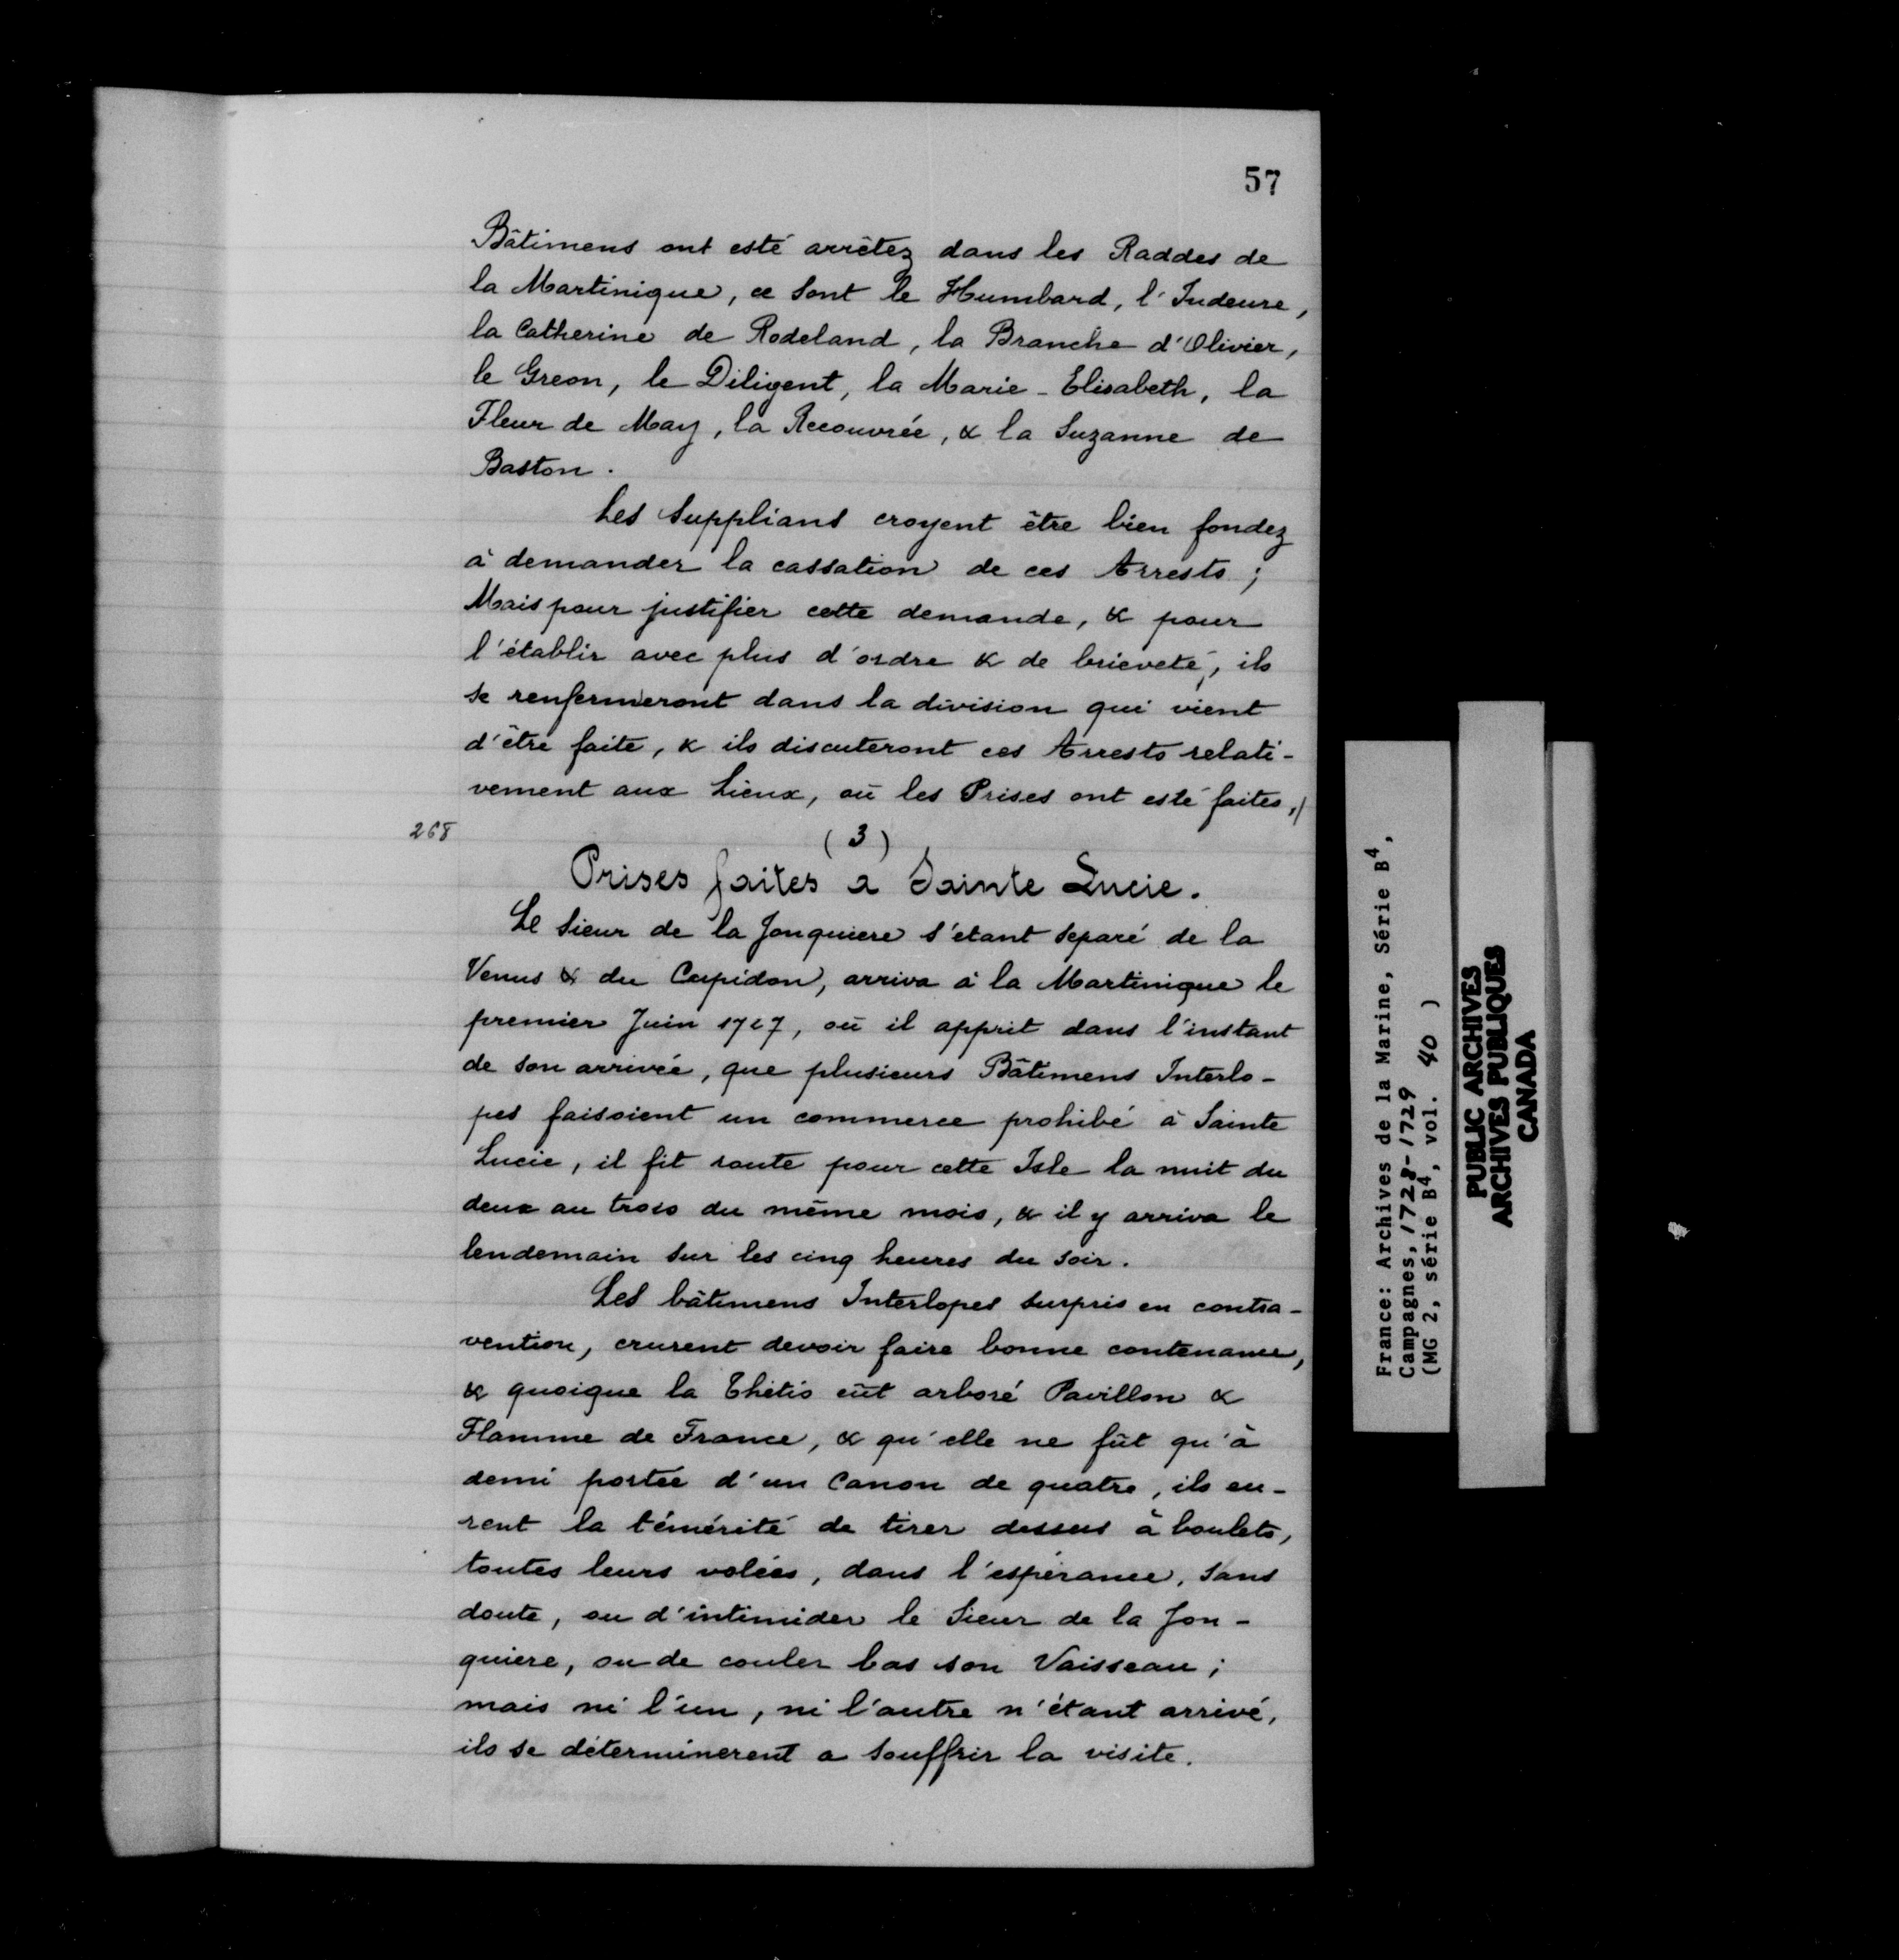 57
Bâtimens ont esté arrêtez dans les Raddes de
la Martinique, ce sont le Humbard, l'Indeure,
la Catherine de Rodeland, la Branche d'Olivier,
le Greon, le Diligent, la Marie-Elisabeth, la
Fleur de May, la Recouvrée, & la Suzanne de
Baston.
Les Supplians croyent être bien fondez
à demander la cassation de ces Arrests ;
Mais pour justifier cette demande, & pour
l'établir avec plus d'ordre & de brieveté, ils
se renfermeront dans la division qui vient
d'être faite, & ils discuteront ces Arrests relati-
vement aux Lieux, où les Prises ont esté faites,/
268
(3)
Prises faites a Sainte Lucie.
Le Sieur de la Jonquiere s'étant separé de la
Venus & du Cupidon, arriva à la Martinique le
premier Juin 1727, où il apprit dans l'instant
de son arrivée, que plusieurs Bâtimens Interlo-
pes faisoient un commerce prohibé à Sainte
Lucie, il fit route pour cette Isle la nuit du
deux au trois du même mois, & il y arriva le
lendemain sur les cinq heures du soir.
Les bâtimens Interlopes surpris en contra-
vention, crurent devoir faire bonne contenance,
& quoique la Thétis eût arboré Pavillon &
Flamme de France, & qu'elle ne fût qu'à
demi portée d'un Canon de quatre, ils eu-
rent la témérité de tirer dessus à boulets,
toutes leurs volées, dans l'espérance, sans
doute, ou d'intimider le Sieur de la Jon-
quiere, ou de couler bas son Vaisseau ;
mais ni l'un, ni l'autre n'étant arrivé,
ils se déterminerent a souffrir la visite.
France: Archives de la Marine, Série B4,
Campagnes, 1728-1729
(MG 2, série B4, vol. 40 )
PUBLIC ARCHIVES
ARCHIVES PUBLIQUES
CANADA